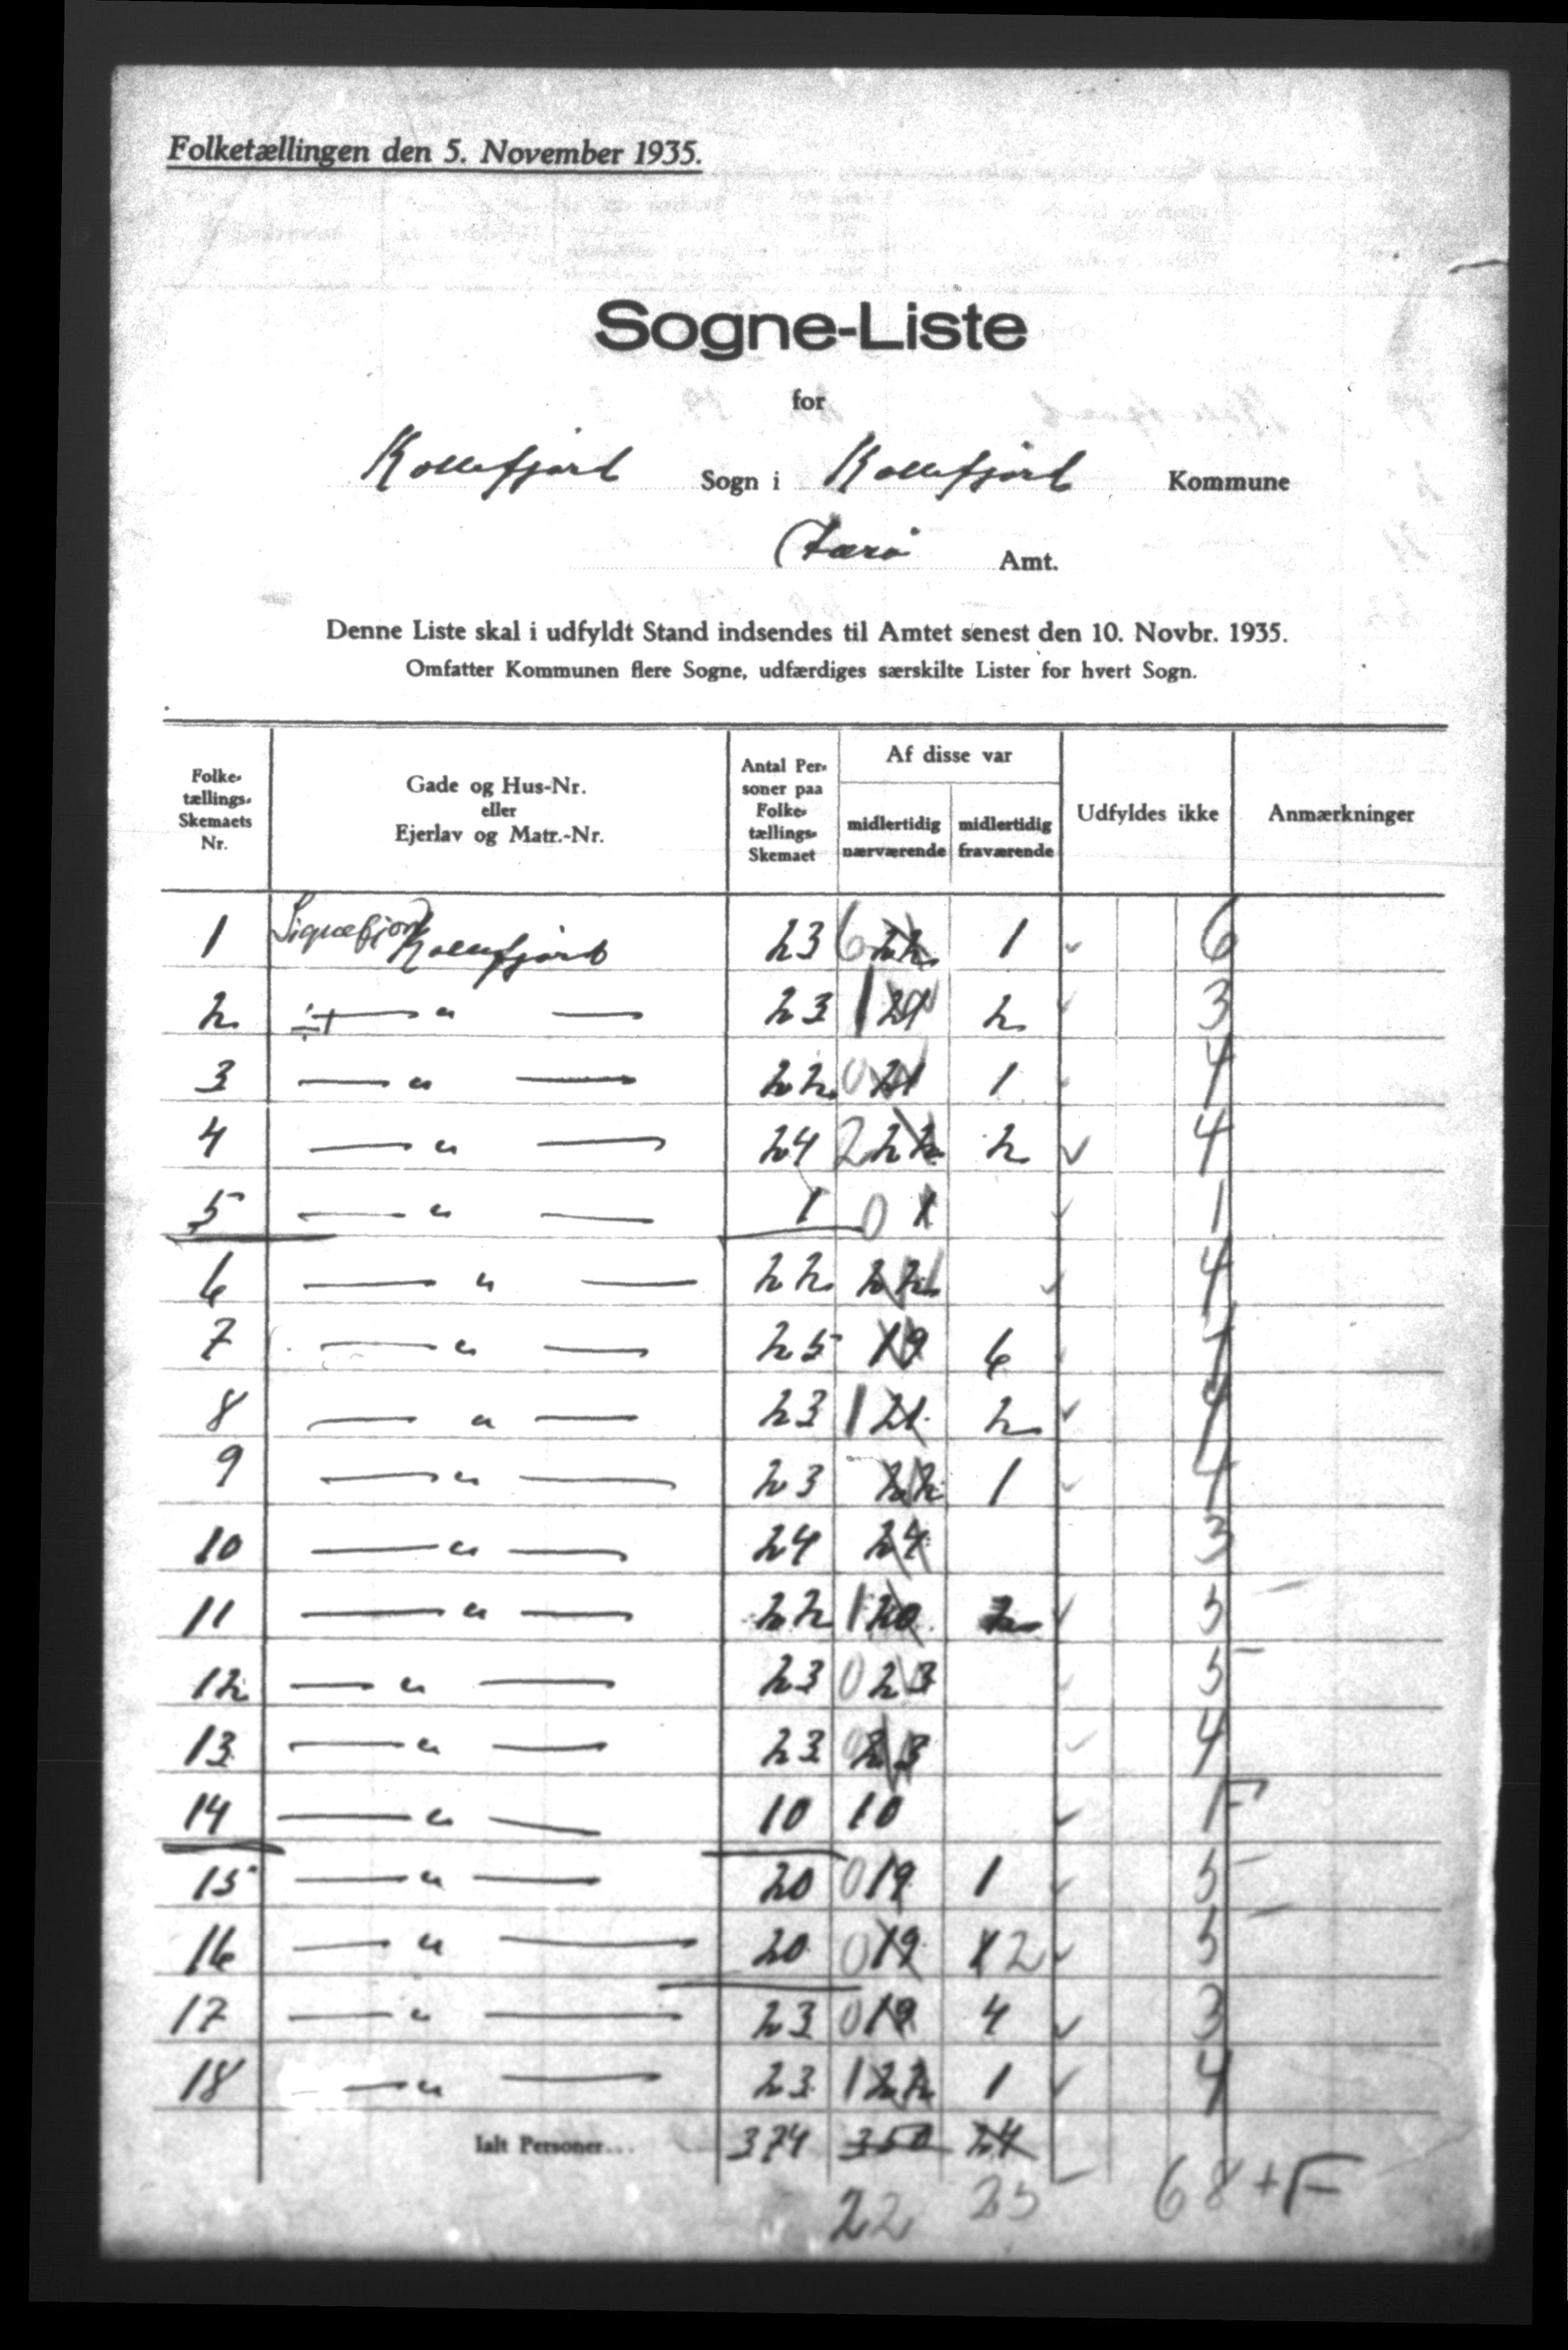 Folketællingen den 5. November 1935.
Sogne-Liste
for
Kollefjord Sogn i Kollefjord Kommune
Færø Amt.
Denne Liste skal i udfyldt Stand indsendes til Amtet senest den 10. Novbr. 1935.
Omfatter Kommunen flere Sogne, udfærdiges særskilte Lister for hvert Sogn.
Folketællings-Skemaets Nr. Gade og Hus-Nr. eller Ejerlav og Matr.-Nr. Antal Personer paa Folketællings-Skemaet Af disse var midlertidig nærværende midlertidig fraværende Udfyldes ikke Anmærkninger
1 Signefjord Kollefjord 23 6 22 1 6
2 — " — 23 1 21 2 3
3 — " — 22 0 21 1 4
4 — " — 24 2 22 2 4
5 — " — 1 0 1 1
6 — " — 22 22 4
7 — " — 25 19 6
8 — " — 23 1 21 2 4
9 — " — 23 22 1 4
10 — " — 24 24 3
11 — " — 22 1 20 2 5
12 — " — 23 0 23 5
13 — " — 23 0 23 4
14 — " — 10 10 F
15 — " — 20 0 19 1 5
16 — " — 20 0 19 1 2 5
17 — " — 23 0 19 4 3
18 — " — 23 1 22 1 4
Ialt Personer... 374 350 24
22 25 68 + F